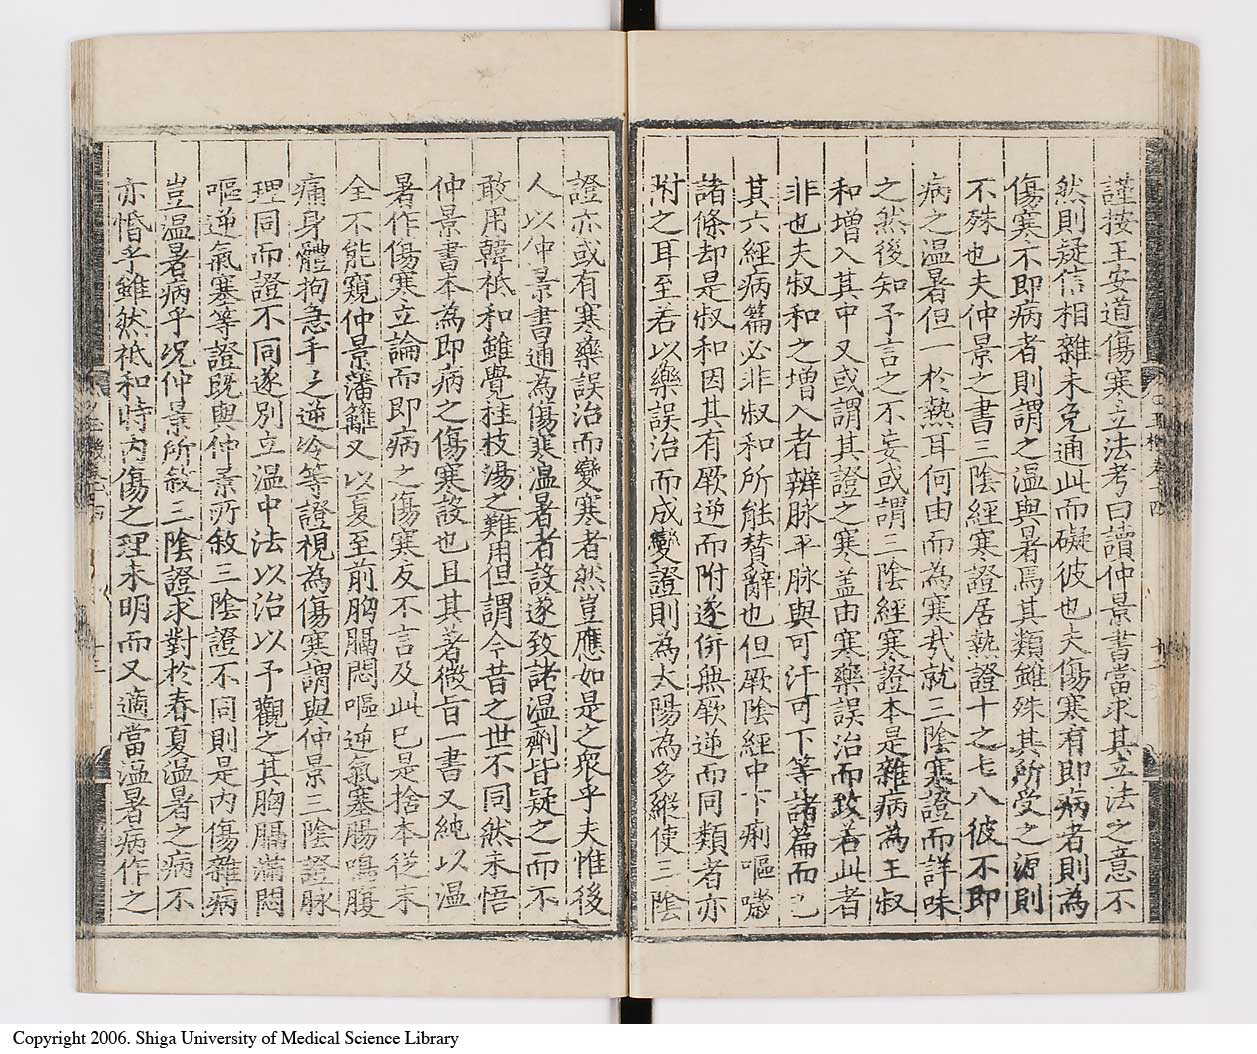 謹按王安道傷寒立法考曰讀仲景書當求其立法之意不
然則疑信相雜未免通此而礙彼也夫傷寒有即病者則為
傷寒不即病者則謂之温與暑焉其類雖殊其所受之源則
不殊也夫仲景之書三陰經寒證居熱證十之七八彼不即
病之温暑但一於熱耳何由而為寒哉就三陰寒證而詳味
之然後知予言之不妄或謂三陰經寒證本是雜病為王叔
和增入其中又或謂其證之寒盖由寒藥誤治而致若此者
非也夫叔和之增入者辨脉平脉與可汗可下等諸篇而已
其六經病篇必非叔和所能賛辭也但厥陰經中下痢嘔噦
諸條却是叔和因其有厥逆而附遂併無厥逆而同類者亦
附之耳至若以藥誤治而成變證則為太陽為多縱使三陰
證亦或有寒藥誤治而變寒者然豈應如是之衆乎夫惟後
人以仲景書通為傷寒温暑者設遂致諸温劑皆疑之而不
敢用韓祗和雖覺桂枝湯之難用但謂今昔之世不同然未悟
仲景書本為即病之傷寒設也且其著微旨一書又純以温
暑作傷寒立論而即病之傷寒反不言及此已是捨本從末
全不能窺仲景藩籬又以夏至前胸膈悶嘔逆氣塞腸鳴腹
痛身體拘急手之逆冷等證視為傷寒謂與仲景三陰證脉
理同而證不同遂別立温中法以治以予觀之其胸膈滿悶
嘔逆氣塞等證既與仲景所敘三陰證不同則是内傷雜病
豈温暑病乎况仲景所敘三陰證求對於春夏温暑之病不
亦惛乎雖然祗和時内傷之理未明而又適當温暑病作之
Copyright 2006. Shiga University of Medical Science Library